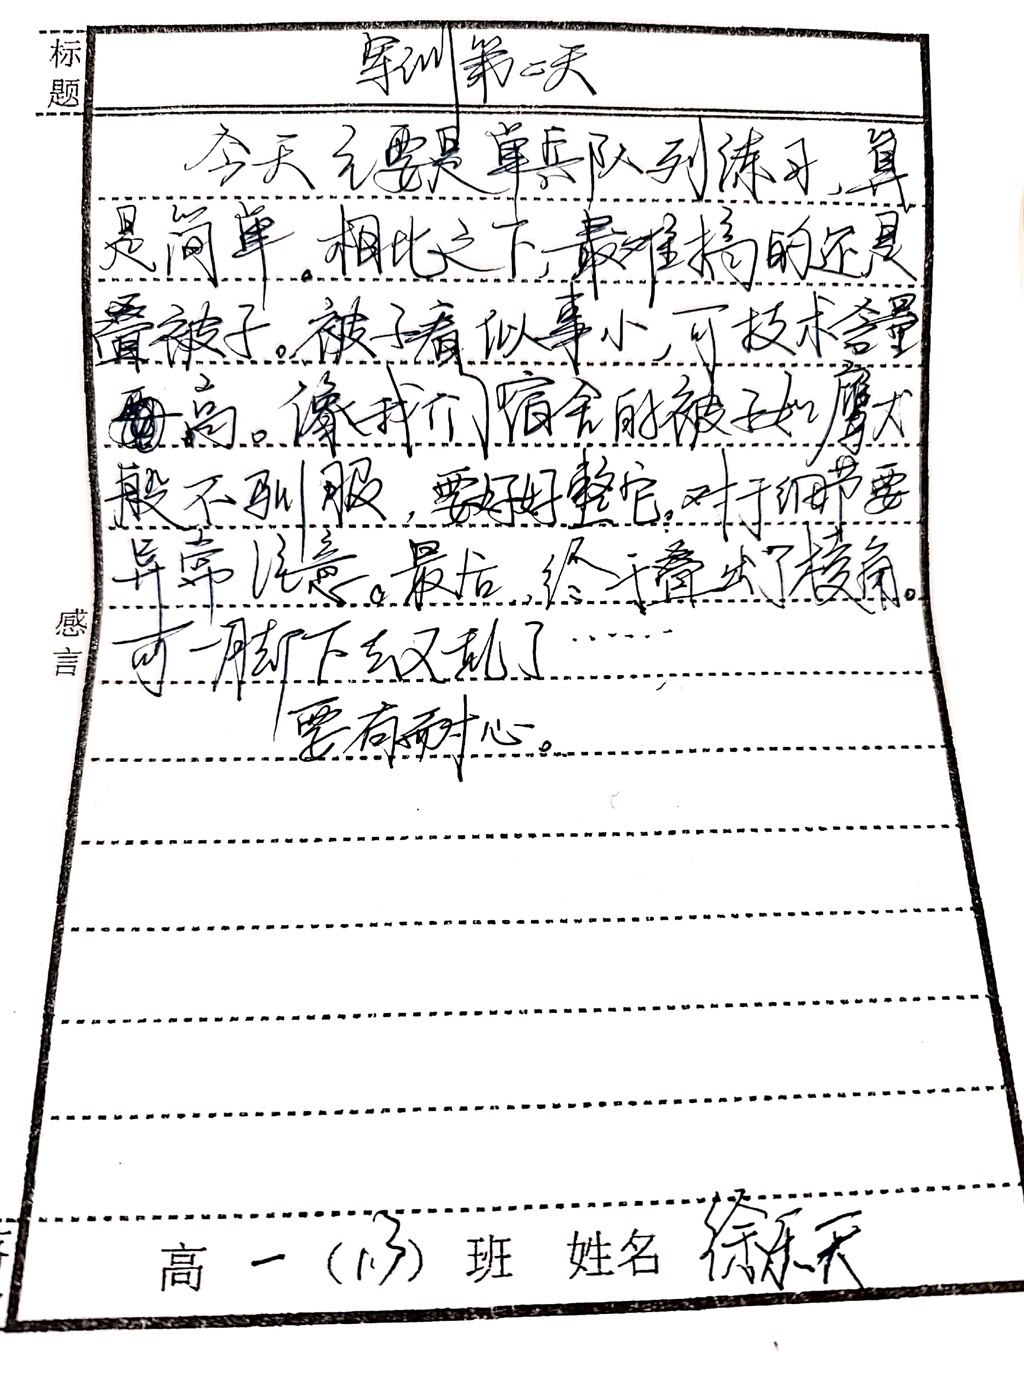 标题
军训第二天
今天主要是单兵队列练习，算
是简单。相比之下，最难搞的还是
叠被子。被子看似事小，可技术含量
高。像我们宿舍的被子如獒犬
般不驯服，要好好整它。对于细节要
异常注意。最后，终于叠出了棱角。
感言
可一脚下去又乱了……
要有耐心。
高一（13）班 姓名 徐乐天